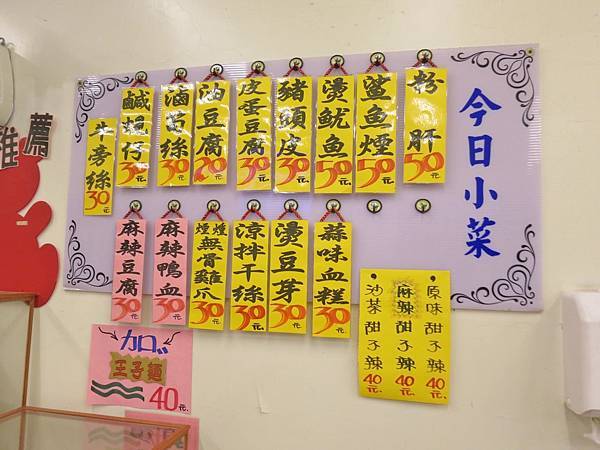 今日小菜
粉肝 50元
鯊魚煙 50元
燙魷魚 50元
豬頭皮 30元
皮蛋豆腐 30元
油豆腐 20元
滷苔絲 30元
鹹蜆仔 30元
牛旁絲 30元
蒜味血糕 30元
燙豆芽 30元
涼拌干絲 30元
煙燻無骨雞爪 30元
麻辣鴨血 30元
麻辣豆腐 30元
原味甜不辣 40元
麻辣甜不辣 40元
沙茶甜不辣 40元
加口
王子麵
40元
推薦